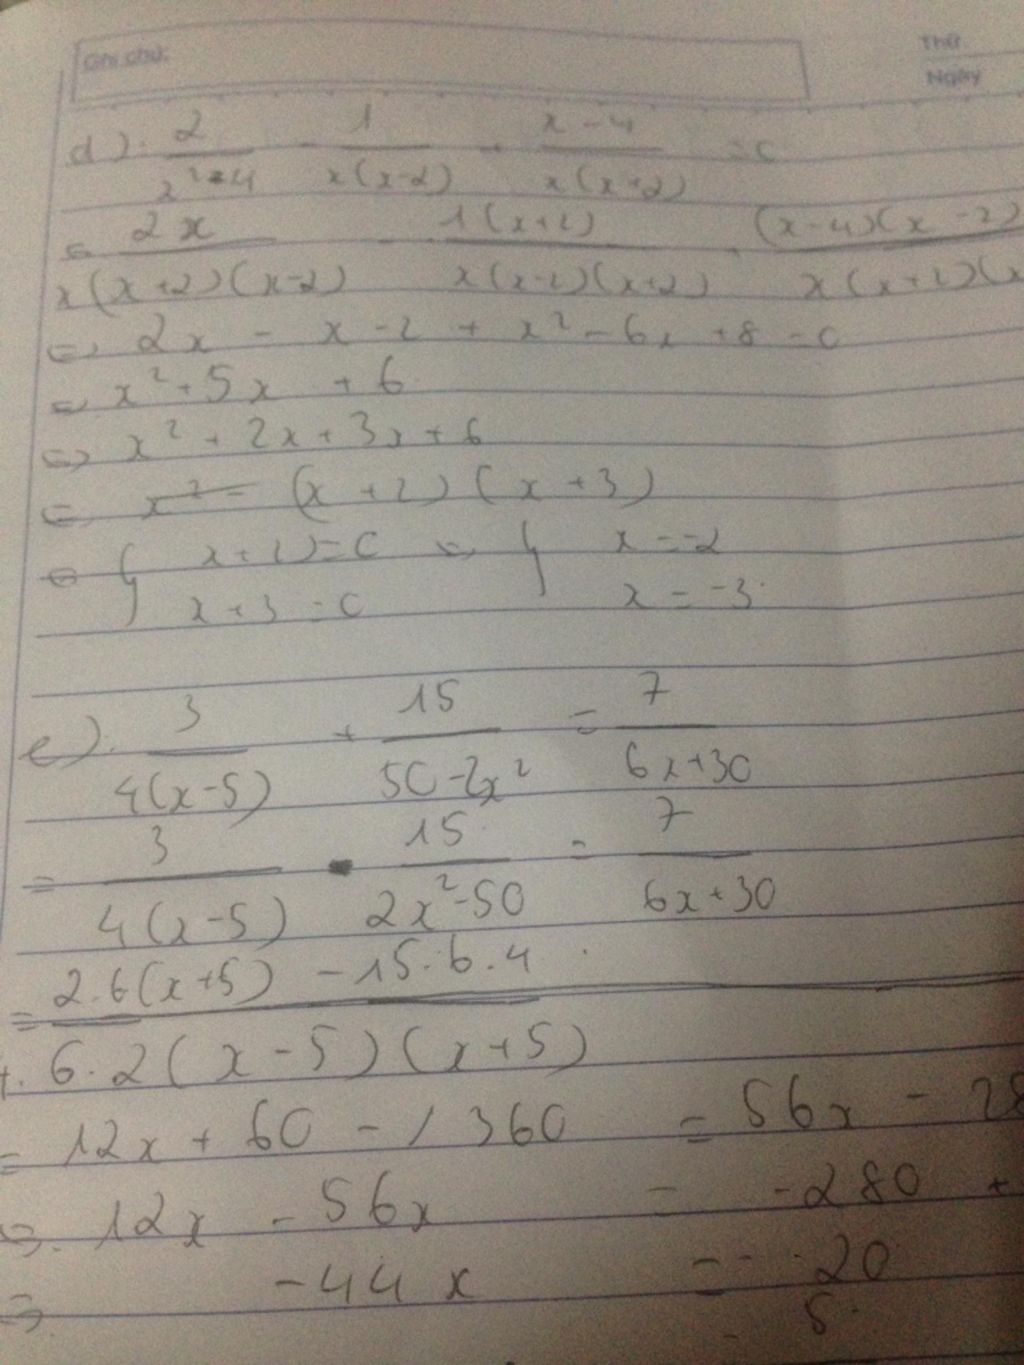 Ghi chú:
Thứ
Ngày
d). 2/(x²-4) - 1/(x(x-2)) + (x-4)/(x(x+2)) = 0
⇔ 2x/(x(x+2)(x-2)) - 1(x+2)/(x(x-2)(x+2)) (x-4)(x-2)/(x(x+2)(x
⇔ 2x - x - 2 + x² - 6x + 8 = 0
⇔ x² + 5x + 6
⇔ x² + 2x + 3x + 6
⇔ (x+2)(x+3)
⇔ { x+2 = 0 ⇔ { x = -2
x+3 = 0 x = -3
e). 3/(4(x-5)) + 15/(50-2x²) = 7/(6x+30)
= 3/(4(x-5)) - 15/(2x²-50) = 7/(6x+30)
= 2.6(x+5) - 15.6.4
6.2(x-5)(x+5)
= 12x + 60 - 360 = 56x - 28
⇔ 12x - 56x = -280 +
⇒ -44x = 20
5